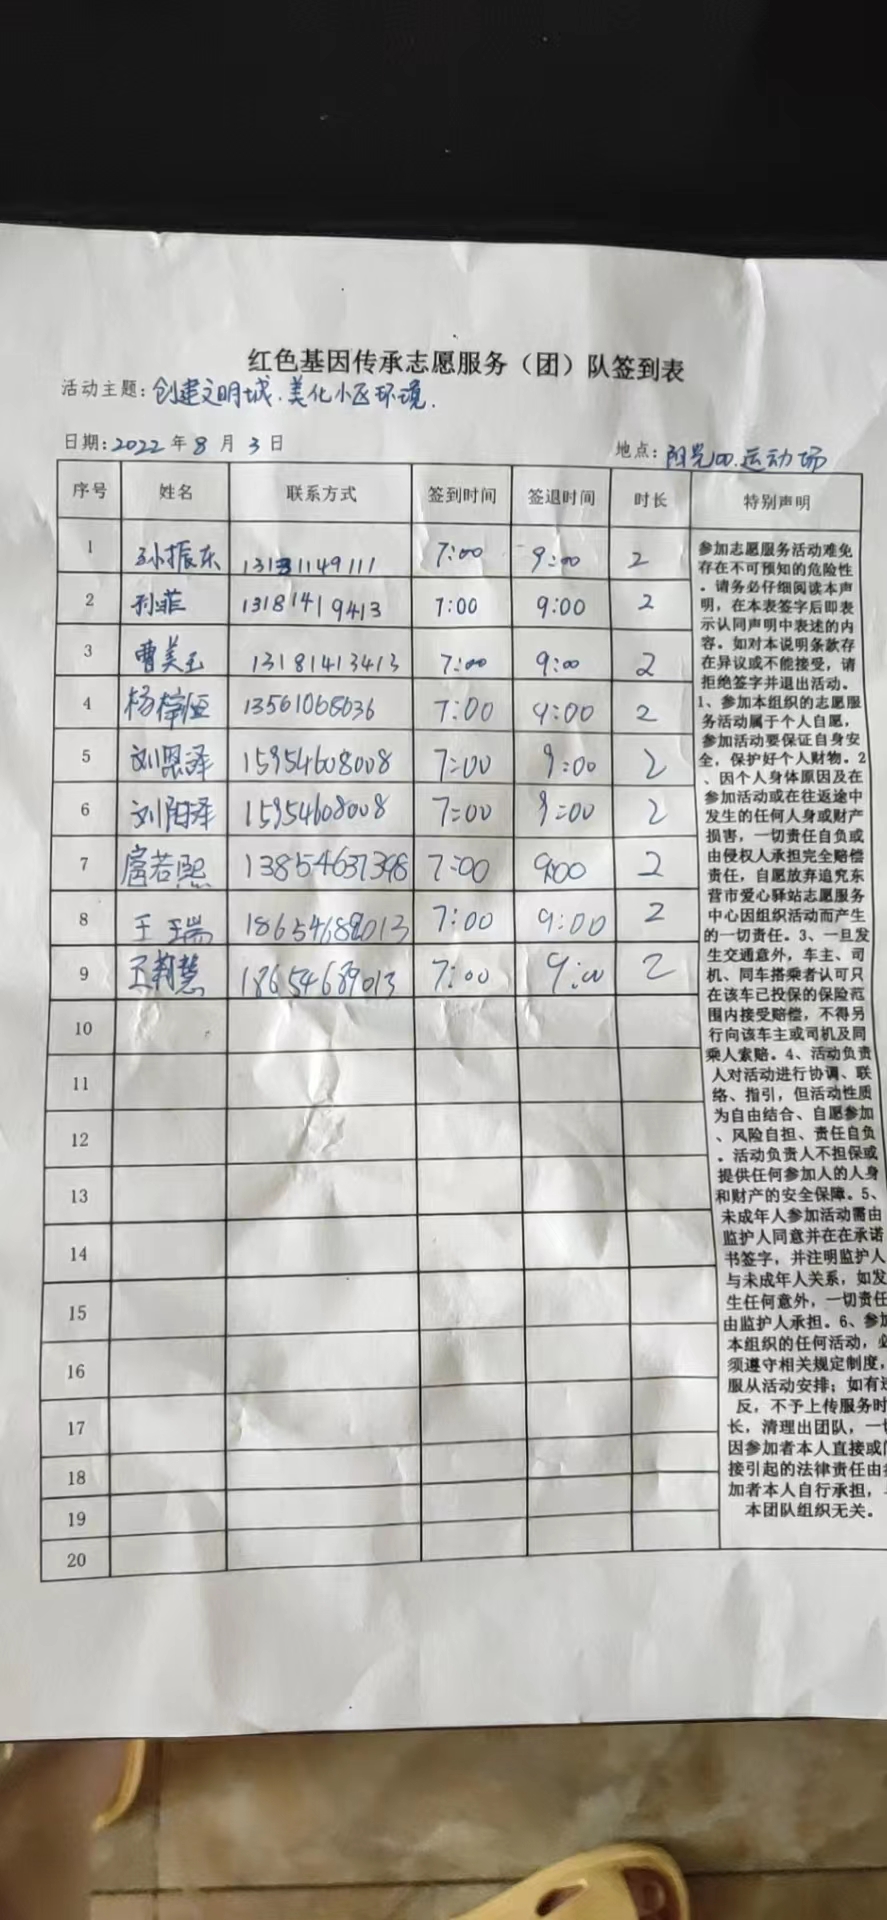 红色基因传承志愿服务（团）队签到表
活动主题：创建文明城.美化小区环境.
日期：2022年8月3日 地点：阳光100.运动场
序号 姓名 联系方式 签到时间 签退时间 时长 特别声明
1 孙振东 7:00 9:00 2
2 孙菲 13181419413 7:00 9:00 2
3 曹美玉 13181413413 7:00 9:00 2
4 杨梓恒 13561068636 7:00 9:00 2
5 刘恩泽 15954608008 7:00 9:00 2
6 刘阳泽 15954608008 7:00 9:00 2
7 扈若熙 13854637398 7:00 9:00 2
8 王瑞 18654689013 7:00 9:00 2
9 王莉慧 18654689013 7:00 9:00 2
10
11
12
13
14
15
16
17
18
19
20
参加志愿服务活动难免
存在不可预知的危险性
。请务必仔细阅读本声
明，在本表签字后即表
示认同声明中表述的内
容。如对本说明条款存
在异议或不能接受，请
拒绝签字并退出活动。
1、参加本组织的志愿服
务活动属于个人自愿，
参加活动要保证自身安
全，保护好个人财物。2
、因个人身体原因及在
参加活动或在往返途中
发生的任何人身或财产
损害，一切责任自负或
由侵权人承担完全赔偿
责任，自愿放弃追究东
营市爱心驿站志愿服务
中心因组织活动而产生
的一切责任。3、一旦发
生交通意外，车主、司
机、同车搭乘者认可只
在该车已投保的保险范
围内接受赔偿，不得另
行向该车主或司机及同
乘人索赔。4、活动负责
人对活动进行协调、联
络、指引，但活动性质
为自由结合、自愿参加
、风险自担、责任自负
。活动负责人不担保或
提供任何参加人的人身
和财产的安全保障。5、
未成年人参加活动需由
监护人同意并在在承诺
书签字，并注明监护人
与未成年人关系，如发
生任何意外，一切责任
由监护人承担。6、参加
本组织的任何活动，必
须遵守相关规定制度，
服从活动安排；如有违
反，不予上传服务时
长，清理出团队，一切
因参加者本人直接或间
接引起的法律责任由参
加者本人自行承担，
本团队组织无关。